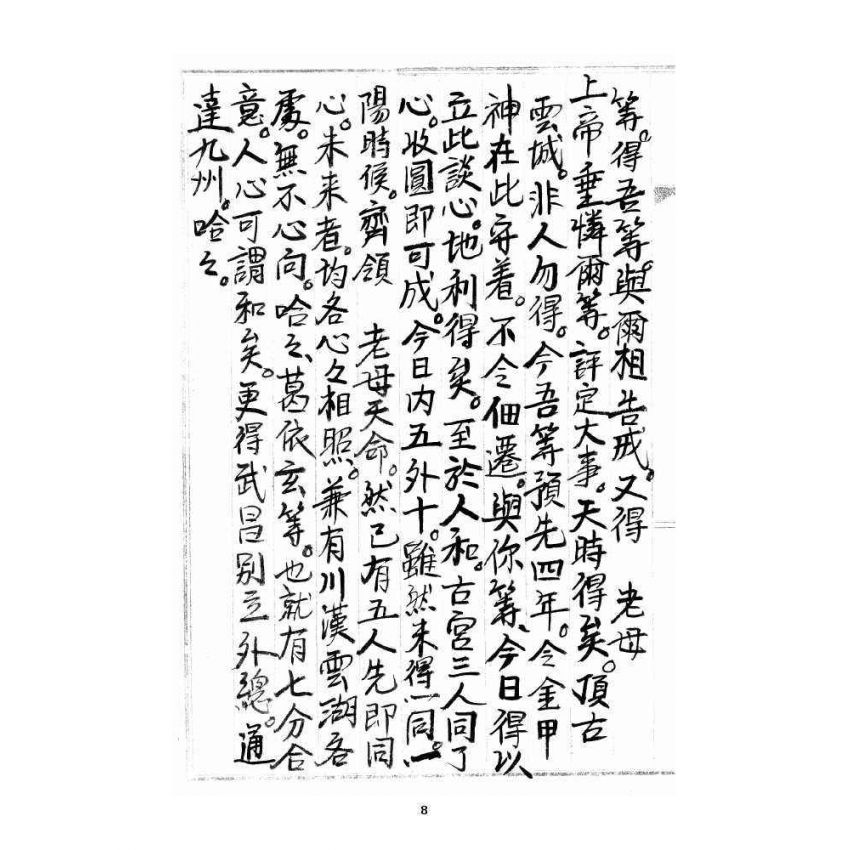 等。得吾等。與爾相告戒。又得　老母
上帝垂憐爾等。評定大事。天時得矣。頂古
雲城。非人勿得。今吾等預先四年。令金甲
神在此守着。不令佃遷。與你等、今日得以
立此談心。地利得矣。至於人和。古宮三人同了
心。收圓即可成。今日内五外十。雖然未得一同。一
陽時候。齊領　老母天命。然已有五人先即同
心。未来者。均各心々相照。兼有川漢雲湖各
處。無不心向。哈々、葛依玄等。也就有七分合
意。人心可謂和矣。更得武昌別立外總。通
達九州。哈々。
8